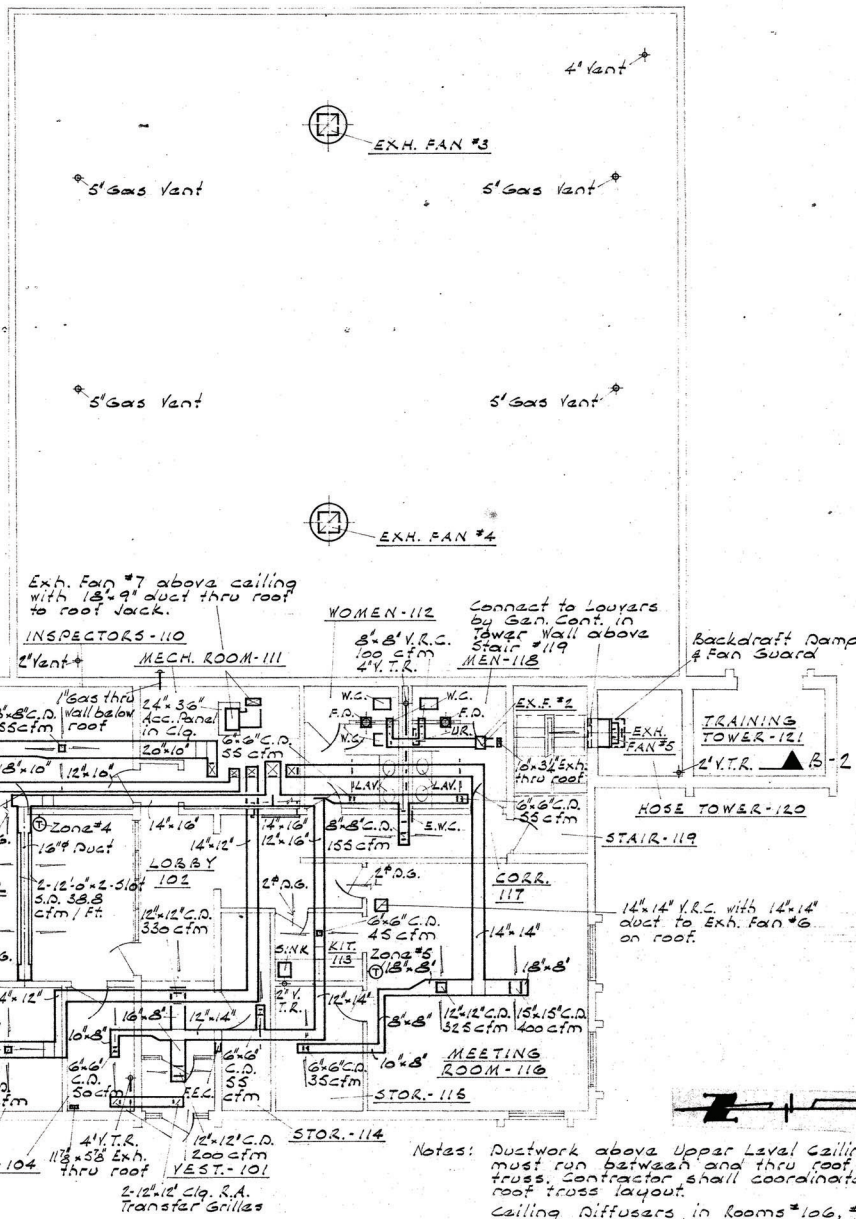 4" Vent
EXH. FAN #3
5" Gas Vent
5" Gas Vent
5" Gas Vent
5" Gas Vent
EXH. FAN #4
Exh. Fan #7 above ceiling
with 18"x9" duct thru roof
to roof Jack.
INSPECTORS-110
2" Vent
MECH. ROOM-111
WOMEN-112
8"x8" V.R.C.
100 cfm
4" V.T.R.
Connect to Louvers
by Gen. Cont. in
Tower Wall above
Stair #119
MEN-118
Backdraft Damp
& Fan Guard
1" Gas thru
Wall below
roof
24"x36"
Acc. Panel
in Clg.
6"x6" C.D.
55 cfm
x8" C.D.
55 cfm
W.C.
W.C.
F.D.
F.D.
W.C.
UR.
EX.F. #2
EXH.
FAN #5
TRAINING
TOWER-121
2" V.T.R.
B-2
HOSE TOWER-120
Exh.
thru roof
20"x10"
18"x10"
12"x10"
LAV.
LAV.
6"x6" C.D.
55 cfm
STAIR-119
14"x16"
14"x12"
14"x16"
12"x16"
8"x8" C.D.
155 cfm
E.W.C.
T
Zone #4
16"ø Duct
2-12'-0"x2-Slot
S.D. 38.8
cfm / Ft.
LOBBY
102
12"x12" C.D.
330 cfm
2" D.G.
2" D.G.
CORR.
117
14"x14" V.R.C. with 14"x14"
duct to Exh. Fan #6
on roof.
6"x6" C.D.
45 cfm
SINK
KIT.
113
Zone #5
T
14"x14"
18"x8"
18"x8"
2" V.
T.R.
4"x12"
16"x8"
12"x14"
12"x14"
8"x8"
12"x12" C.D.
325 cfm
15"x15" C.D.
400 cfm
10"x8"
10"x8"
6"x6"
C.D.
50 cfm
6"x6"
C.D.
55
cfm
6"x6" C.D.
35 cfm
MEETING
ROOM-116
F.E.C.
STOR.-115
STOR.-114
104
4" V.T.R.
Exh.
thru roof
12"x12" C.D.
200 cfm
VEST.-101
2-12"x12" Clg. R.A.
Transfer Grilles
Notes: Ductwork above Upper Level Ceilin
must run between and thru roof
truss. Contractor shall coordinate
roof truss layout.
Ceiling Diffusers in Rooms #106, #